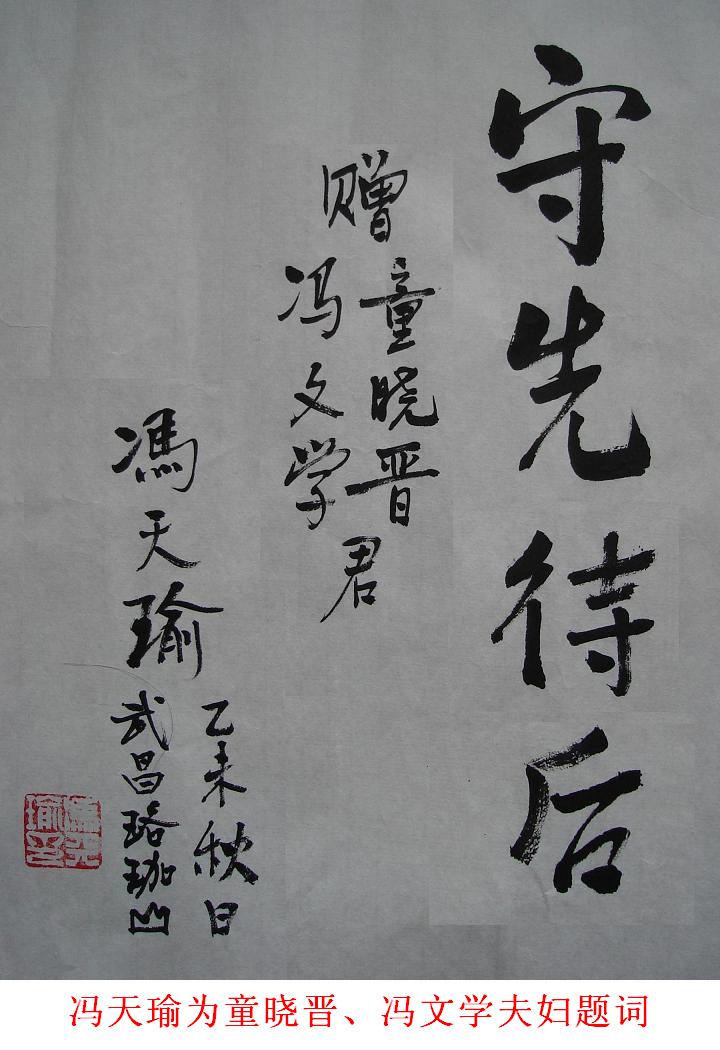 守先待后
赠童晓晋
冯文学君
馮天瑜
乙未秋日
武昌珞珈山
馮天瑜印
冯天瑜为童晓晋、冯文学夫妇题词